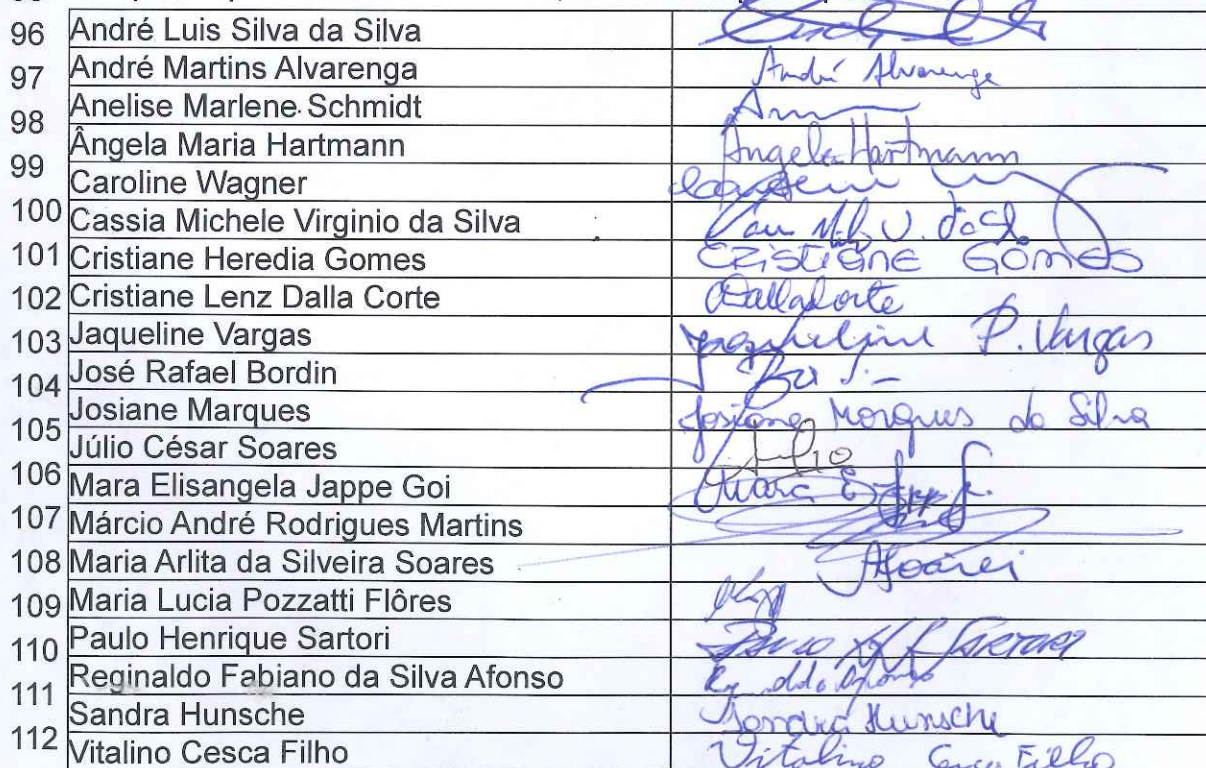 96 André Luis Silva da Silva
97 André Martins Alvarenga André Alvarenga
Anelise Marlene Schmidt
98 Ângela Maria Hartmann Angela Hartmann
99 Caroline Wagner
100 Cassia Michele Virginio da Silva
101 Cristiane Heredia Gomes CRISTIANE GOMES
102 Cristiane Lenz Dalla Corte DallaCorte
103 Jaqueline Vargas Jaqueline P. Vargas
104 José Rafael Bordin
Josiane Marques Josiane Marques da Silva
105 Júlio César Soares Júlio
106 Mara Elisangela Jappe Goi Mara E
107 Márcio André Rodrigues Martins
108 Maria Arlita da Silveira Soares ASoares
109 Maria Lucia Pozzatti Flôres
110 Paulo Henrique Sartori
Reginaldo Fabiano da Silva Afonso
111 Sandra Hunsche Sandra Hunsche
112 Vitalino Cesca Filho Vitalino Cesca Filho